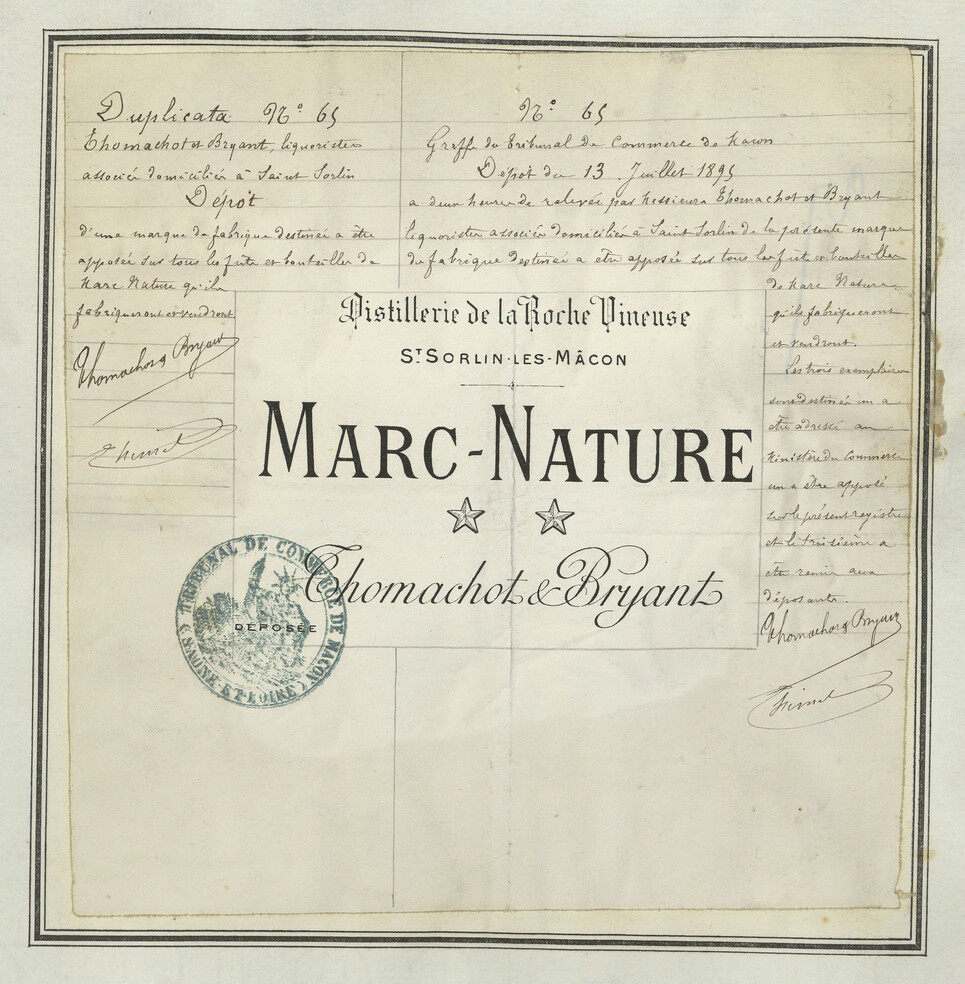 Duplicata N° 65
Thomachot et Bryant, liquoristes
associés domiciliés à Saint Sorlin
Dépôt
d'une marque de fabrique destinée a être
apposée sur tous les fûts et bouteilles de
Marc Nature qu'ils
fabriqueront et vendront.
Thomachot & Bryant
N° 65
Greffe du Tribunal de Commerce de Macon
Dépôt du 13 Juillet 1895
a deux heures de relevée par Messieurs Thomachot et Bryant
liquoristes associés domiciliés à Saint Sorlin de la présente marque
de fabrique destinée a etre apposée sur tous les fûts et bouteilles
de Marc Nature
qu'ils fabriqueront
et vendront.
Les trois exemplaires
sont destinés un a
être adressé au
Ministère du Commerce
un a être apposé
sur le présent registre
et le troisième a
être remis aux
déposants.
Thomachot & Bryant
Distillerie de la Roche Vineuse
ST SORLIN-LES-MÂCON
MARC-NATURE
Thomachot & Bryant
DÉPOSÉE
TRIBUNAL DE COMMERCE DE MACON
(SAÔNE-ET-LOIRE)